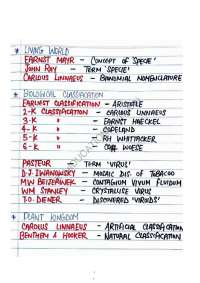 * LIVING WORLD
EARNST MAYR - CONCEPT OF 'SPECIE'
JOHN RAY - TERM 'SPECIE'
CAROLUS LINNAEUS - BINOMIAL NOMENCLATURE
* BIOLOGICAL CLASSIFICATION
EARLIEST CLASSIFICATION - ARISTOTLE
2-K CLASSIFICATION - CAROLUS LINNAEUS
3-K " - EARNST HAECKEL
4-K " - COPELAND
5-K " - RH WHITTACKER
6-K " - CARL WOESE
PASTEUR - TERM 'VIRUS'
D.J. IWANOWSKY - MOSAIC DIS. OF TOBACCO
M.W BEIJERINEK - CONTAGIUM VIVUM FLUIDUM
W.M. STANLEY - CRYSTALISE VIRUS
T.O. DENER - DISCOVERED 'VIROIDS'
* PLANT KINGDOM
CAROLUS LINNAEUS - ARTIFICIAL CLASSIFICATION
BENTHEM & HOOKER - NATURAL CLASSIFICATION